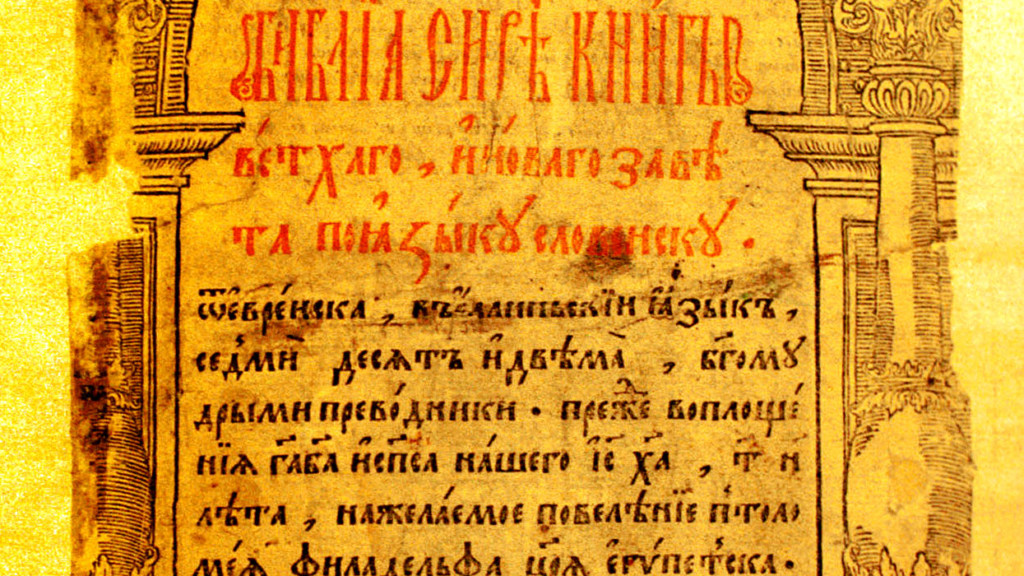 БИБЛІА СИРѢ КНИГЫ
ВЕ́ТХАГО , И҆ НО́ВАГО ЗАВѢ
ТА ПОꙖЗЫ́КꙊ СЛОВЕНСКꙊ .
Ѿ ЕВРЕ́ИСКА , ВЪ Е҆ЛЛИНЬСКЇИ ꙖЗЫ́КЪ ,
СЕ́ДМИ ДЕСѦТЪ И҆ ДВѢМА̀ , БГ҃ОМꙊ
ДРЫМИ ПРЕВО́ДНИКИ . ПРЕ́ЖЕ ВОПЛОЩЕ́
НЇѦ ГА҃ БА҃ И҆ СП҃СА НА́ШЕГО І҆С҃ ХА҃ , Т҃ И
ЛѢ́ТА , НА ЖЕЛА́ЕМОЕ ПОВЕЛѢ́НЇЕ П̾ТОЛО
МЕ́Ѧ ФИЛАДЕЛЬФА ЦР҃Ѧ Е҆ГѴ́ПЕТСКА .